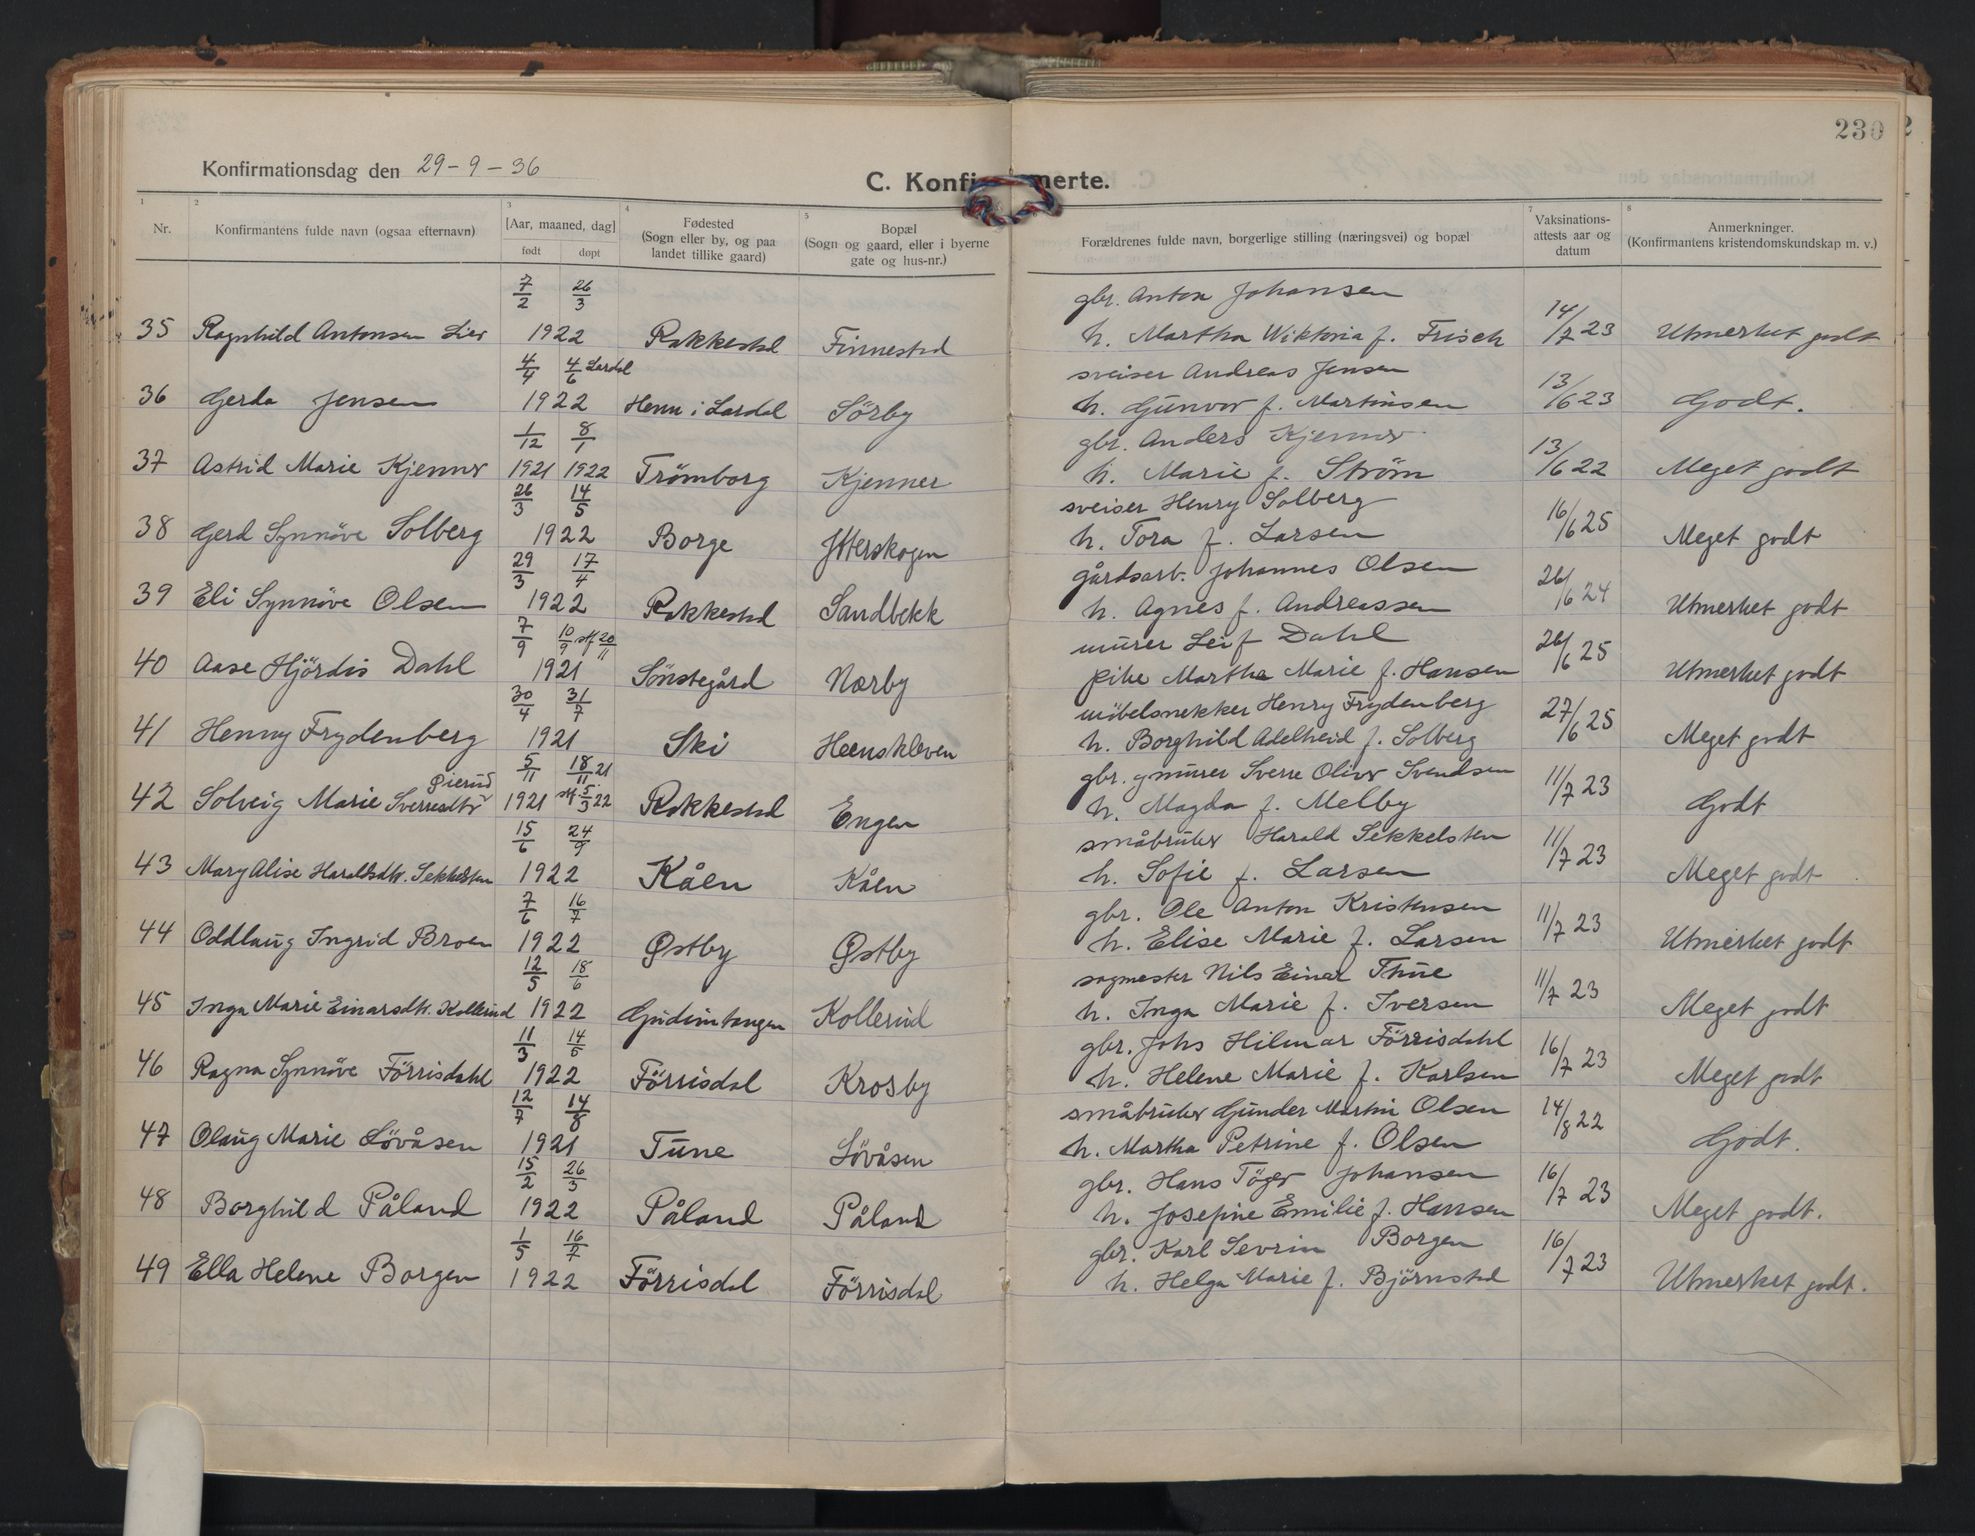 230
Konfirmationsdag den 29-9-36
C. Konfi merte.
1 2 3 4 5 7 8
Nr. Konfirmantens fulde navn (ogsaa efternavn) [Aar, maaned, dag] født døpt Fødested (Sogn eller by, og paa landet tillike gaard) Bopæl (Sogn og gaard, eller i byerne gate og hus-nr.) Forældrenes fulde navn, borgerlige stilling (næringsvei) og bopæl Vaksinations-attests aar og datum Anmerkninger. (Konfirmantens kristendomskundskap m. v.)
7/2 26/3 gbr. Anton Johansen
35 Ragnhild Antonsen Lier 1922 Rakkestad Finnestad h. Martha Wiktoria f. Frisch 14/7 23 Utmerket godt
4/4 4/6 Lardal sveiser Andreas Jensen
36 Gerda Jensen 1922 Hem i Lardal Sörby h. Gunvor f. Martinsen 13/6 23 Godt.
1/12 8/1 gbr. Anders Kjenner
37 Astrid Marie Kjenner 1921 1922 Trömborg Kjenner h. Marie f. Ström 13/6 22 Meget godt
26/3 14/5 sveiser Henry Solberg
38 Gerd Synnöve Solberg 1922 Borge Ytterskogen h. Tora f. Larsen 16/6 25 Meget godt
29/3 17/4 gårdsarb. Johannes Olsen
39 Eli Synnöve Olsen 1922 Rakkestad Sandbekk h. Agnes f. Andreassen 26/6 24 Utmerket godt
7/9 10/9 stf 20/11 murer Leif Dahl
40 Aase Hjördis Dahl 1921 Sönstegård Nærby pike Martha Marie f. Hansen 26/6 25 Utmerket godt
30/4 31/7 möbelsnekker Henry Frydenberg
41 Henny Frydenberg 1921 Ski Heenskleven h. Borghild Adelheid f. Solberg 27/6 25 Meget godt
5/11 18/11 21 gbr. g murer Sverre Oliver Svendsen
42 Solveig Marie Sverresdtr Øierud 1921 stf. 5/3 22 Rakkestad Engen h. Magda f. Melby 11/7 23 Godt
15/6 24/9 småbruker Harald Sekkelsten
43 Mary Alise Haraldsdtr. Sekkelsten 1922 Kåen Kåen h. Sofie f. Larsen 11/7 23 Meget godt
7/6 16/7 gbr. Ole Anton Kristensen
44 Oddlaug Ingrid Broen 1922 Østby Østby h. Elise Marie f. Larsen 11/7 23 Utmerket godt
12/5 18/6 sagmester Nils Einar Thue
45 Inga Marie Einarsdtr. Kollerud 1922 Gudimtangen Kollerud h. Inga Marie f. Iversen 11/7 23 Meget godt
11/3 14/5 gbr. Johs Hilmar Förrisdahl
46 Ragna Synnöve Förrisdahl 1922 Förrisdal Krosby h. Helene Marie f. Karlsen 16/7 23 Meget godt
12/7 14/8 småbruker Gunder Martin Olsen
47 Olaug Marie Lövåsen 1921 Tune Lövåsen h. Martha Petrine f. Olsen 14/8 22 Godt.
15/2 26/3 gbr. Hans Töger Johansen
48 Borghild Påland 1922 Påland Påland h. Josefine Emilie f. Hansen 16/7 23 Meget godt.
1/5 16/7 gbr. Karl Sevrin Borgen
49 Ella Helene Borgen 1922 Förrisdal Förrisdal h. Helga Marie f. Björnstad 16/7 23 Utmerket godt.